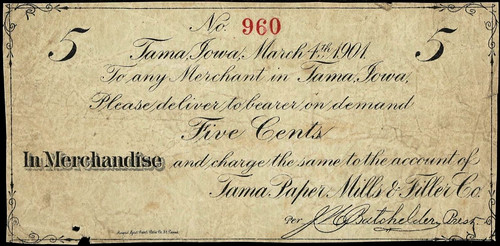 No. 960
5 5
Tama, Iowa, March 4th 1901
To any Merchant in Tama, Iowa,
Please deliver to bearer on demand
Five Cents
In Merchandise and charge the same to the account of
Tama Paper Mills & Filler Co.
per Batchelder, Prest.